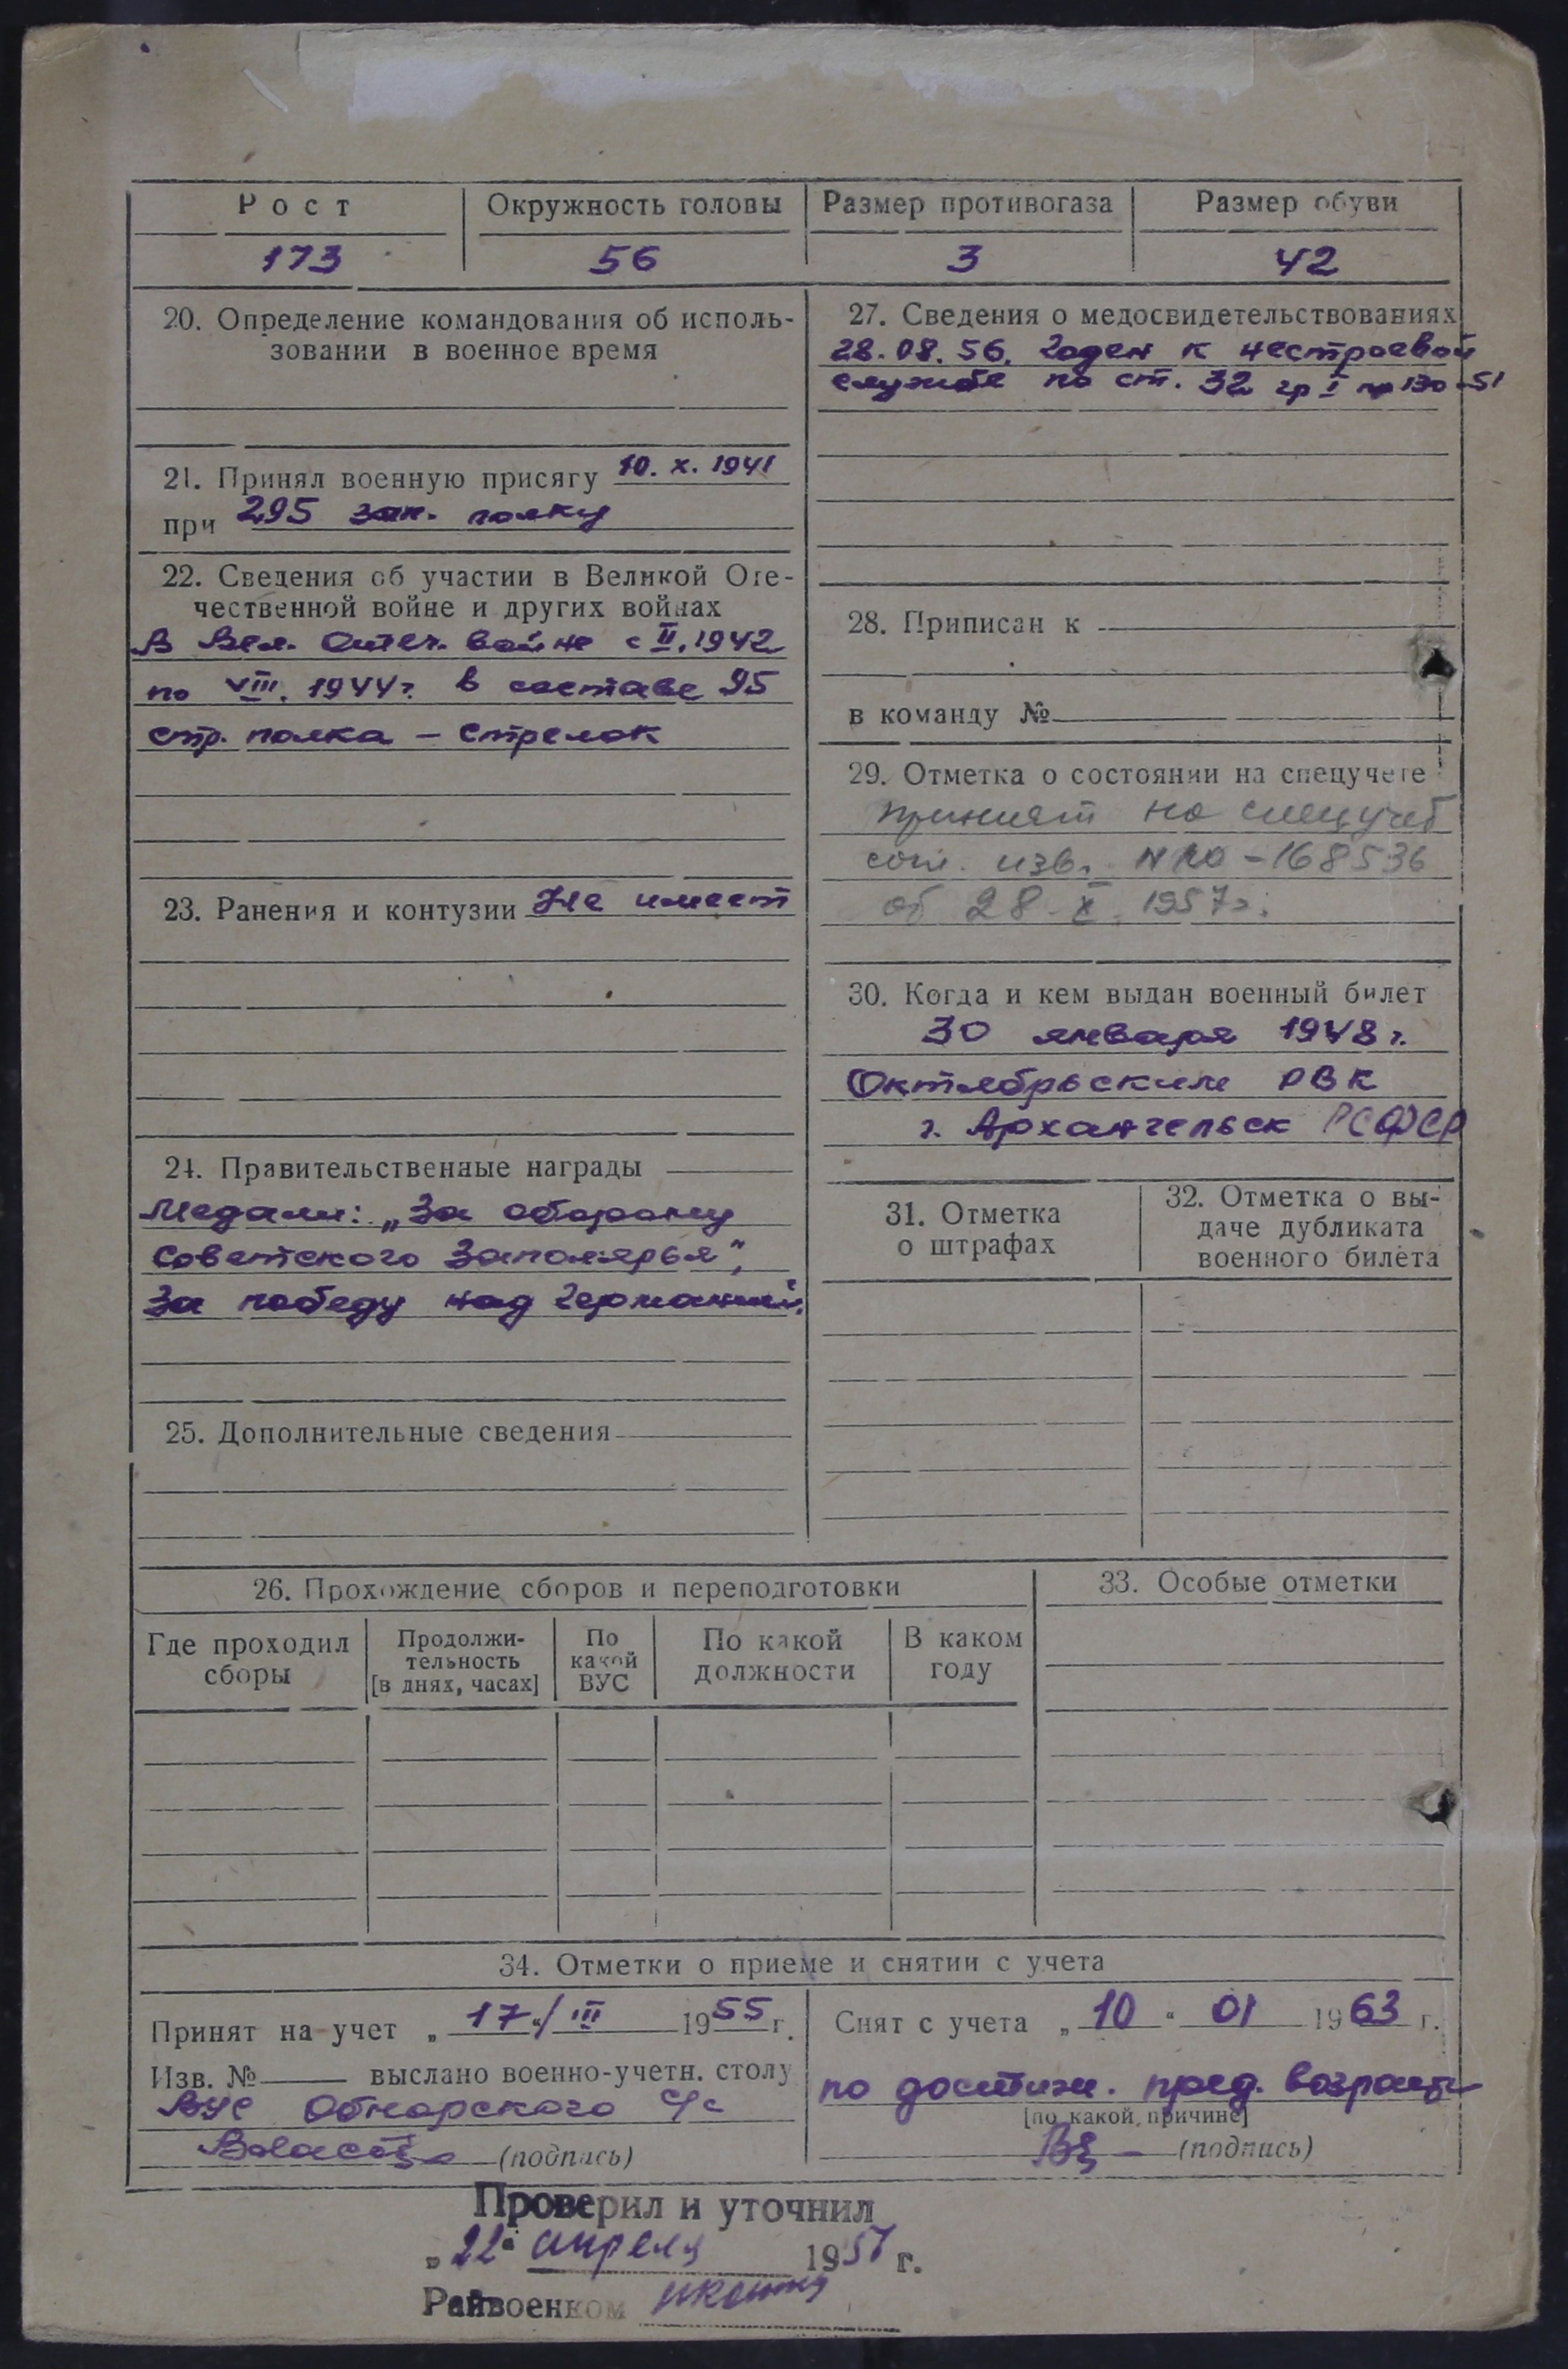 Рост Окружность головы Размер противогаза Размер обуви
173 56 3 42
20. Определение командования об исполь-
зовании в военное время
21. Принял военную присягу 10. X. 1941
при 295 зап. полку
22. Сведения об участии в Великой Оте-
чественной войне и других войнах
В Вел. Отеч. войне с II. 1942
по VIII. 1944г. в составе 95
стр. полка – стрелок
23. Ранения и контузии Не имеет
24. Правительственные награды
Медали: „За оборону
Советского Заполярья",
За победу над Германией.
25. Дополнительные сведения
27. Сведения о медосвидетельствованиях
28.08.56. Годен к нестроевой
службе по ст. 32 гр I пр 130-51
28. Приписан к
в команду №
29. Отметка о состоянии на спецучете
принят на спецучет
согл. изв. № -168536
от 28 X. 1957г.
30. Когда и кем выдан военный билет
30 января 1948 г.
Октябрьским РВК
г. Архангельск РСФСР
31. Отметка
о штрафах
32. Отметка о вы-
даче дубликата
военного билета
26. Прохождение сборов и переподготовки
Где проходил
сборы
Продолжи-
тельность
[в днях, часах]
По
какой
ВУС
По какой
должности
В каком
году
33. Особые отметки
34. Отметки о приеме и снятии с учета
Принят на учет „ 17 “ / III 1955 г.
Изв. № выслано военно-учетн. столу
ВУС Обнорского с/с
(подпись)
Снят с учета „ 10 “ 01 1963 г.
по достиж. пред. возраста
[по какой причине]
(подпись)
Проверил и уточнил
„ 22 “ апреля 1957 г.
Райвоенком